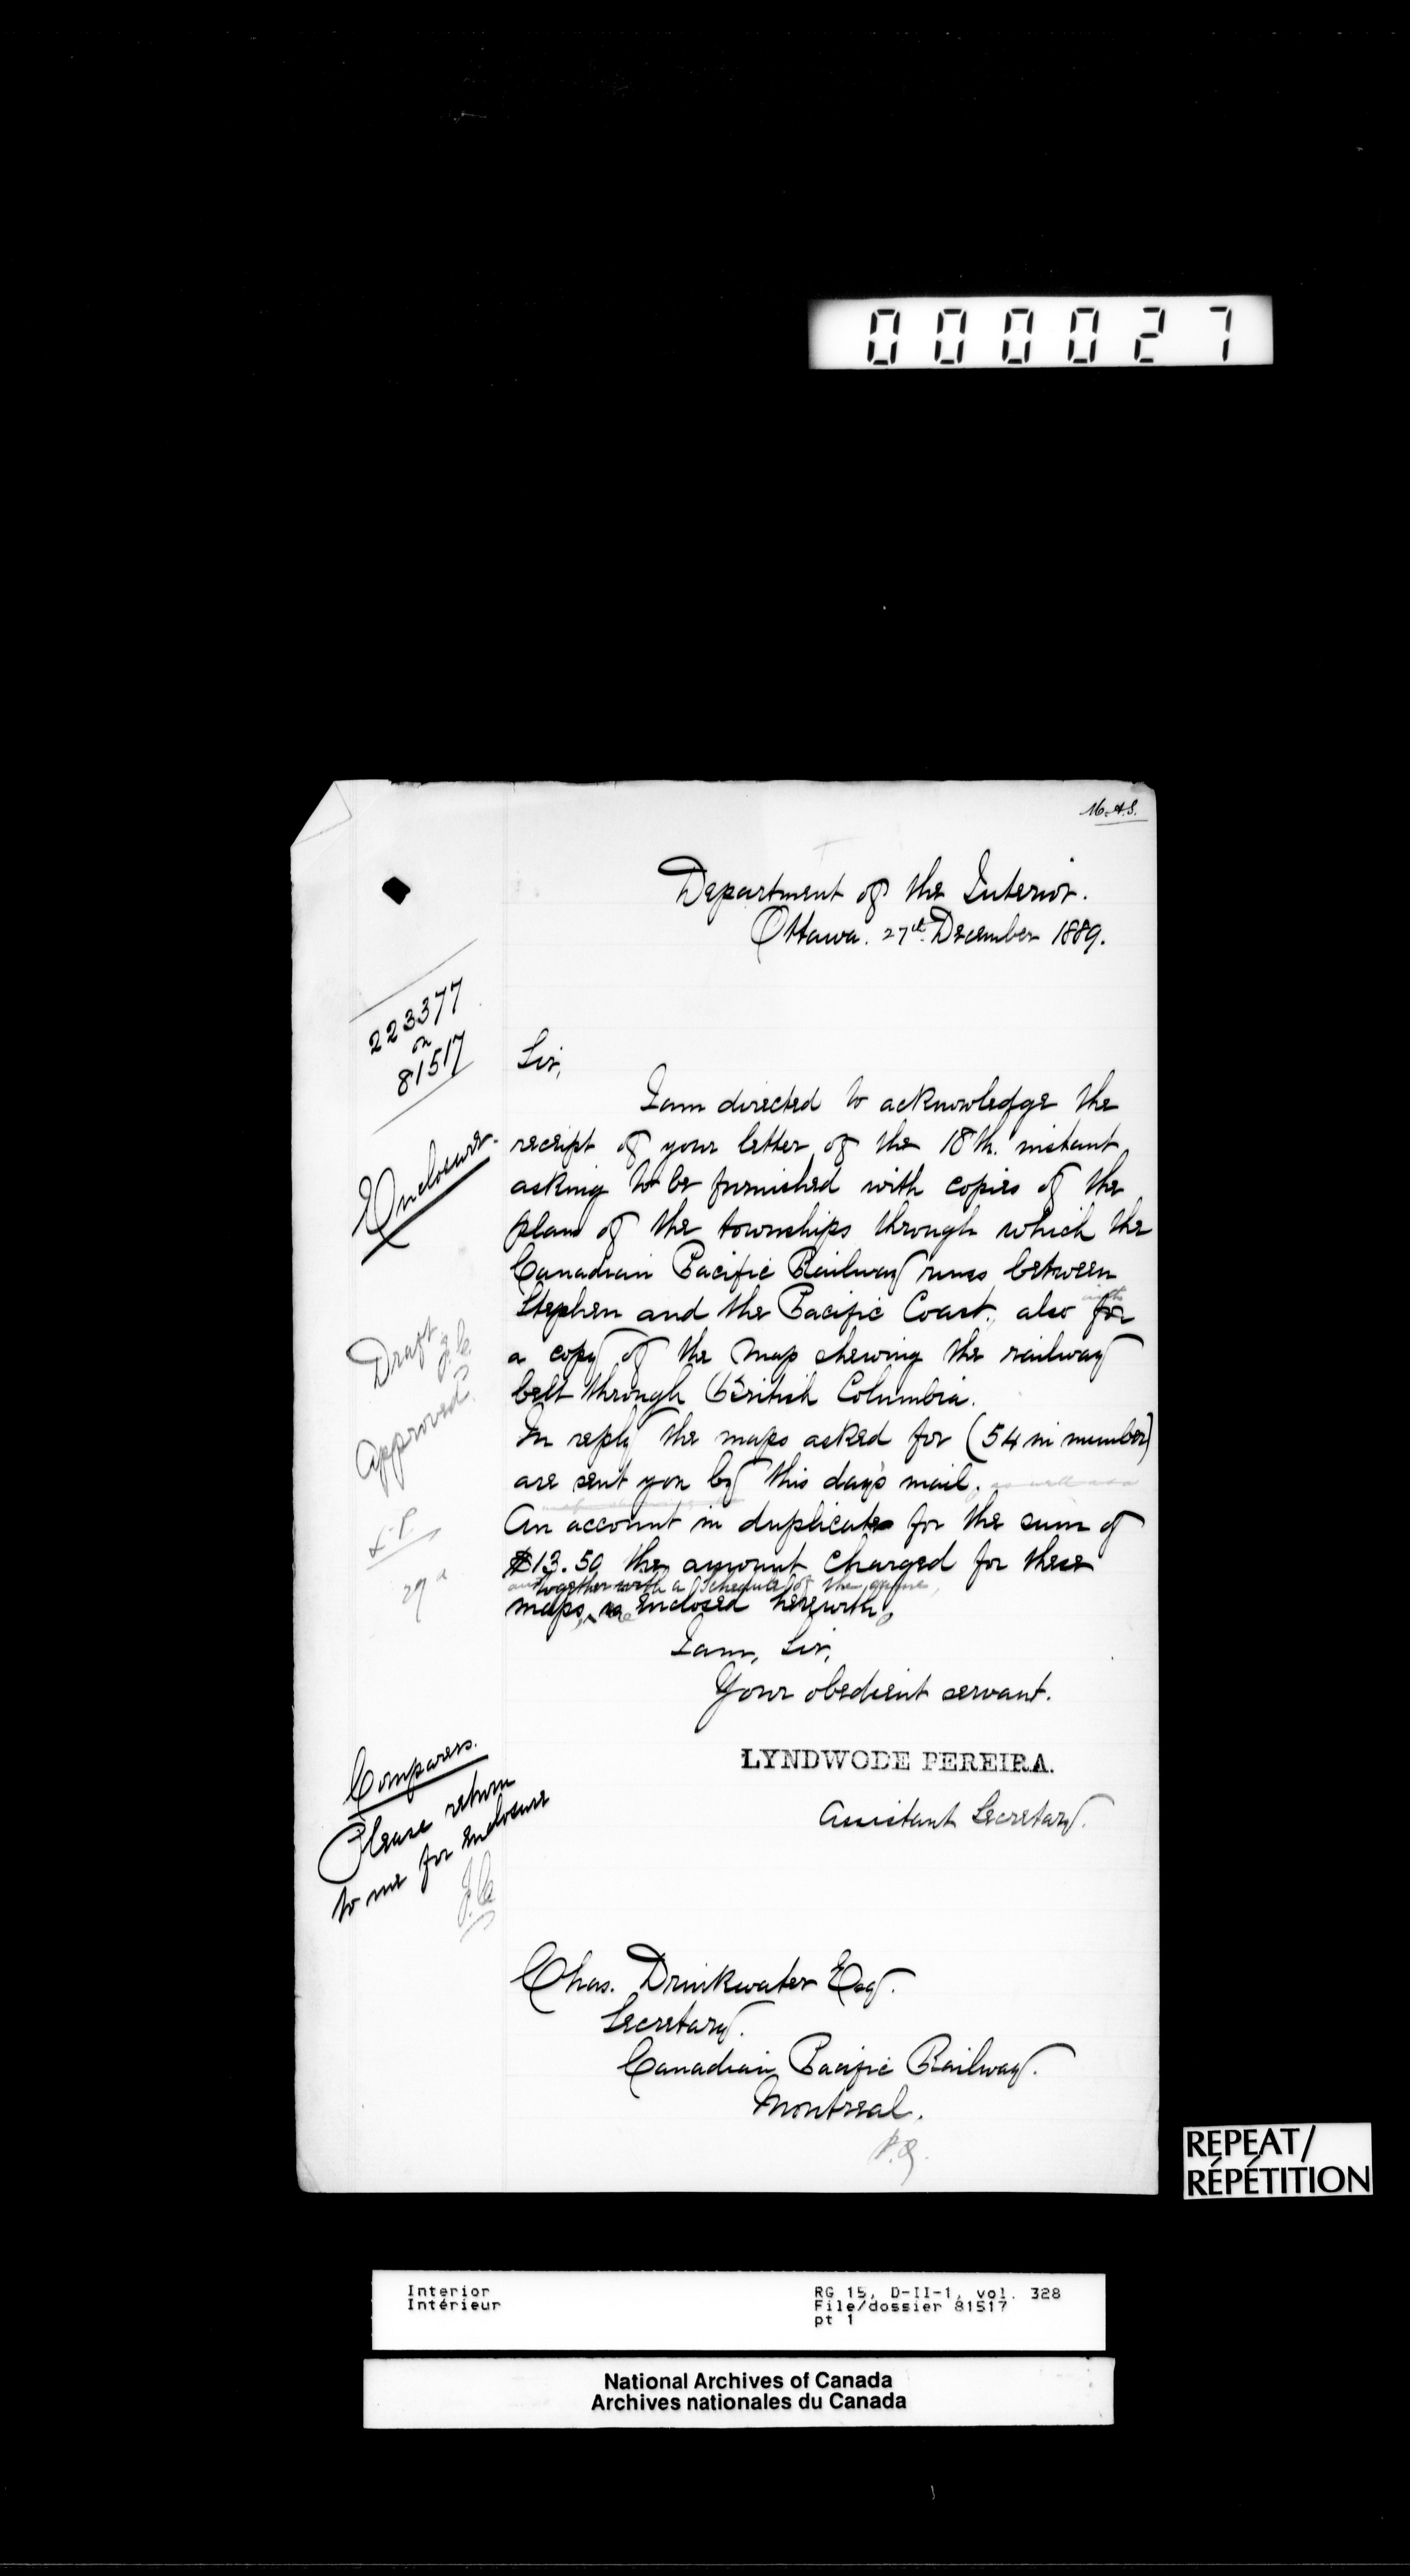 000027
M.A.S.
Department of the Interior.
Ottawa. 27th December 1889.
223377
on
81517
Sir,
I am directed to acknowledge the
receipt of your letter of the 18th. instant
Enclosures.
asking to be furnished with copies of the
plans of the townships through which the
Canadian Pacific Railway runs between
Stephen and the Pacific Coast, also for
a copy of the map shewing the railway
belt through British Columbia.
Draft
approved.
L.P.
In reply the maps asked for (54 in number)
are sent you by this day's mail.
An account in duplicate for the sum of
$13.50 the amount charged for these
together with a schedule of the same,
maps, enclosed herewith.
I am, Sir,
Your obedient servant.
LYNDWODE PEREIRA.
Assistant Secretary.
Comparers.
Please return
to me for enclosure
Chas. Drinkwater Esq.
Secretary.
Canadian Pacific Railway.
Montreal.
P.Q.
REPEAT/
RÉPÉTITION
Interior
Intérieur
RG 15, D-II-1, vol. 328
File/dossier 81517
pt 1
National Archives of Canada
Archives nationales du Canada